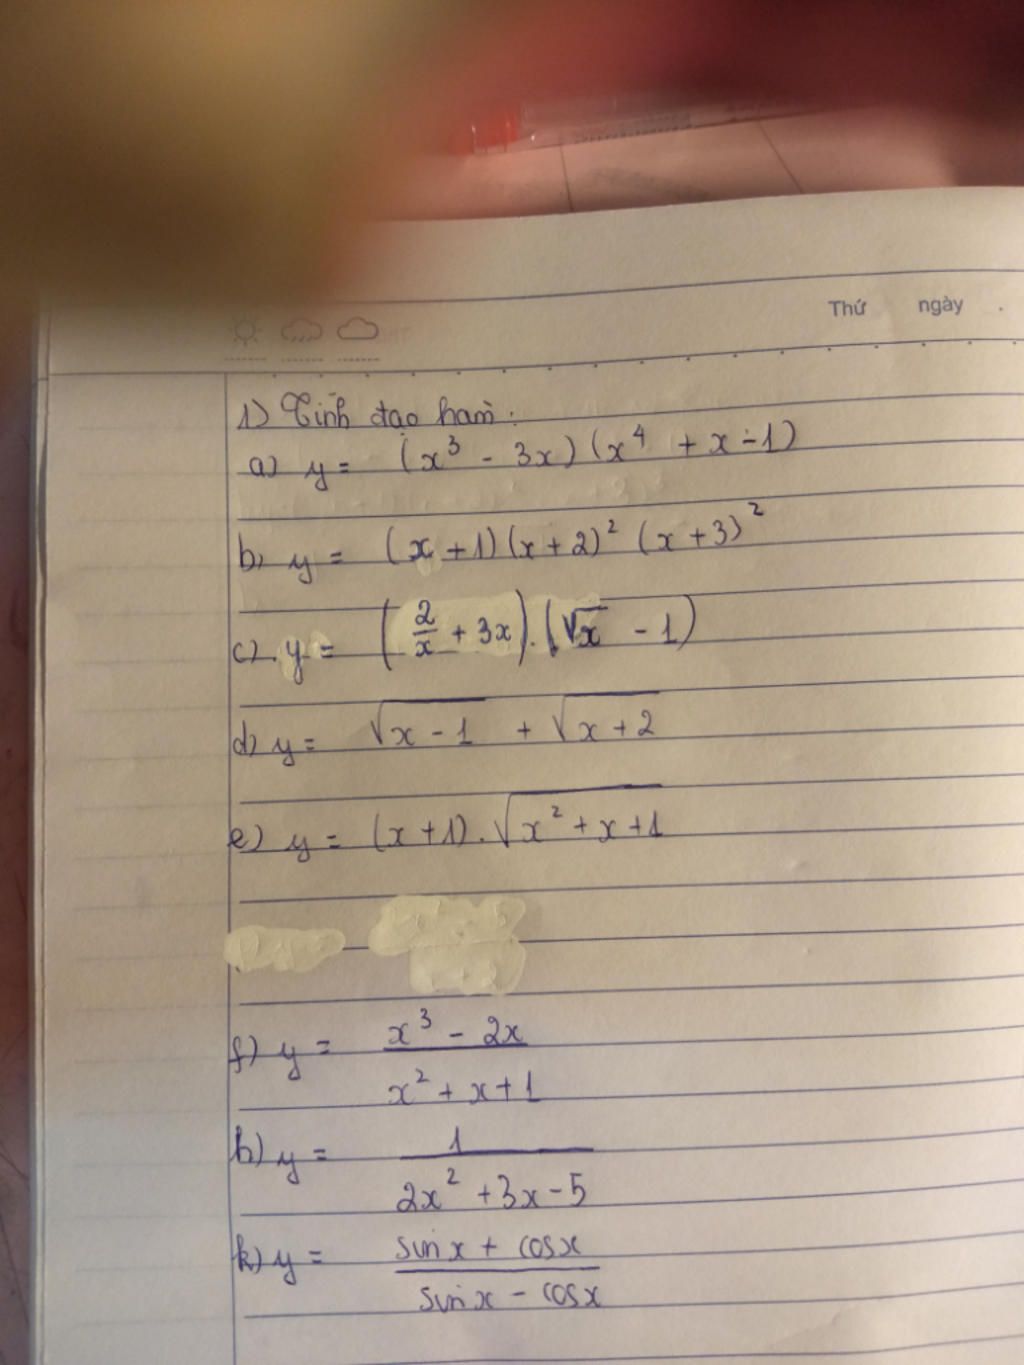 Thứ ngày .
1) Tính đạo hàm :
a) y = (x³ - 3x)(x⁴ + x - 1)
b) y = (x + 1)(x + 2)² (x + 3)²
c) y = (2/x + 3x).(√x - 1)
d) y = √(x - 1) + √(x + 2)
e) y = (x + 1).√(x² + x + 1)
f) y = (x³ - 2x)/(x² + x + 1)
h) y = 1/(2x² + 3x - 5)
k) y = (sin x + cos x)/(sin x - cos x)